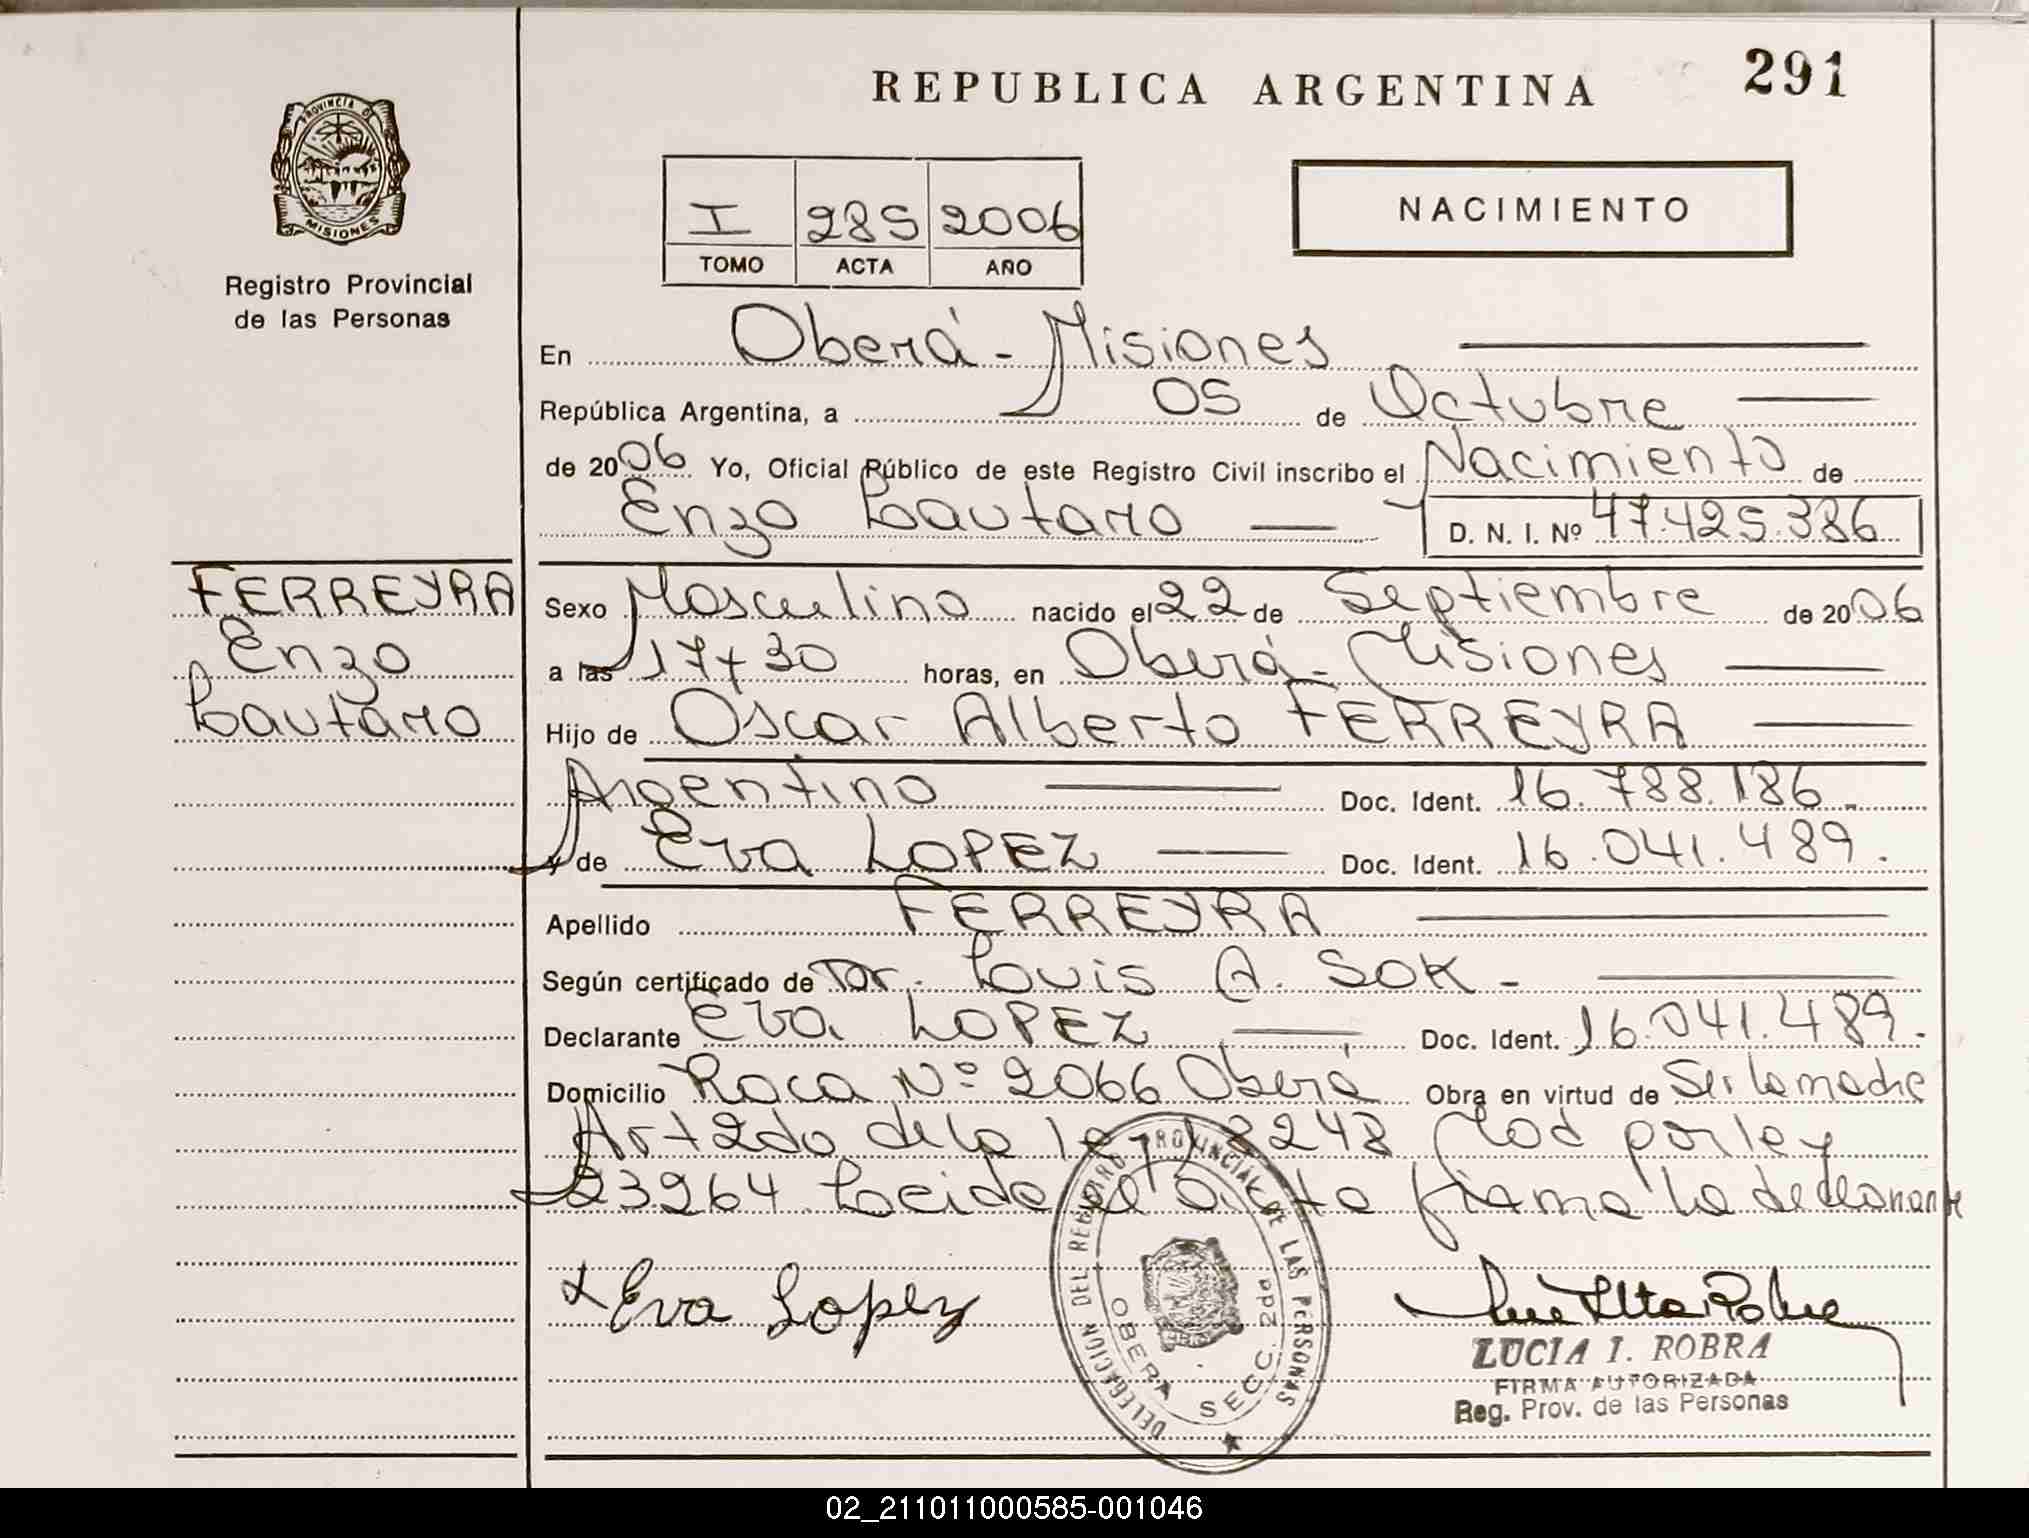 REPUBLICA ARGENTINA
291
PROVINCIA DE
MISIONES
Registro Provincial
de las Personas
I 285 2006
TOMO ACTA AÑO
NACIMIENTO
En Oberá - Misiones
República Argentina, a 05 de Octubre
de 2006 Yo, Oficial Público de este Registro Civil inscribo el Nacimiento de
Enzo Lautaro D. N. I. Nº 47.425.386
FERREYRA
Enzo
Lautaro
Sexo Masculino nacido el 22 de Septiembre de 2006
a las 17+30 horas, en Oberá - Misiones
Hijo de Oscar Alberto FERREYRA
Argentino Doc. Ident. 16.788.186.
y de Eva LOPEZ Doc. Ident. 16.041.489.
Apellido FERREYRA
Según certificado de Dr. Louis A. SOK -
Declarante Eva LOPEZ Doc. Ident. 16.041.489.
Domicilio Roca Nº 2066 Oberá Obra en virtud de Ser la madre
Art 2do de la ley 18248 Mod por ley
23.264 Leida el acta firma la declarante
x Eva Lopez
DELEGACION DEL REGISTRO PROVINCIAL DE LAS PERSONAS
OBERA SECC. 2da
LUCIA I. ROBRA
FIRMA AUTORIZADA
Reg. Prov. de las Personas
02_211011000585-001046